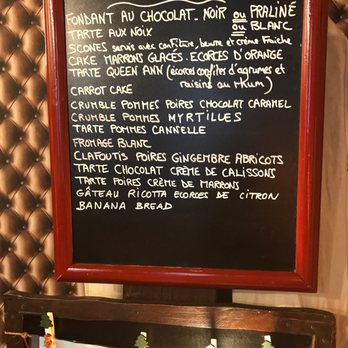 FONDANT AU CHOCOLAT NOIR ou PRALINÉ
ou BLANC
TARTE AUX NOIX
SCONES servis avec confiture, beurre et crème fraîche
CAKE MARRONS GLACÉS ECORCES D'ORANGE
TARTE QUEEN ANN (écorces confites d'agrumes et
raisins au rhum)
CARROT CAKE
CRUMBLE POMMES POIRES CHOCOLAT CARAMEL
CRUMBLE POMMES MYRTILLES
TARTE POMMES CANNELLE
FROMAGE BLANC
CLAFOUTIS POIRES GINGEMBRE ABRICOTS
TARTE CHOCOLAT CRÈME DE CALISSONS
TARTE POIRES CRÈME DE MARRONS
GÂTEAU RICOTTA ECORCES DE CITRON
BANANA BREAD